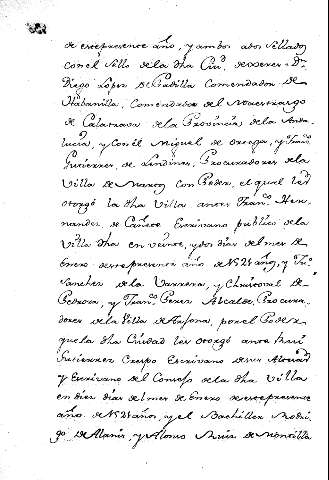 de este presente año, y ambos ados sellados
con el sello de la dha Ciud. de xerez. Dn
Diego Lopez de Padilla Comendador de
Habanilla, Comendador del Maestrazgo
de Calatrava de la Provincia de la Anda
lucia, y con él Miguel de Ortega, y Franco
Gutierrez, de Procuradores de la
Villa de Martos con Poder, el qual les
otorgó la dha Villa ante Franco Her
nandez, de Escrivano público de la
Villa dha en veinte, y dos dias del mes de
Enero de este presente año de N21 años, y Juo
Sanchez de la Barrera, y Christoval de
Pedrosa, y Franco Perez Alcalde, Procura
dores de la Villa de Arjona, por el Poder
que la dha Ciudad les otorgó ante Luis
Gutierrez Crespo Escrivano de sus Altezas
y Escrivano del Concejo de la dha Villa
en diez dias del mes de Enero de este presente
año de N21 años, y el Bachiller Rodri
go de Alanis, y Alonso Ruiz de Montilla